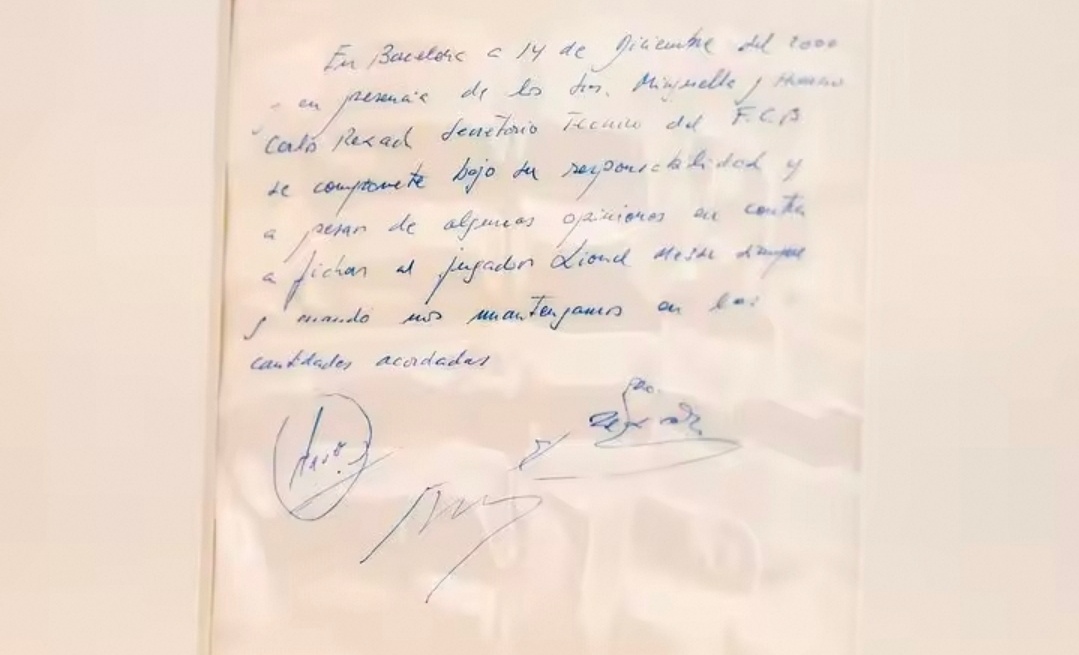 En Barcelona a 14 de Diciembre del 2000
y en presencia de los Srs. Minguella y Horacio
Carlos Rexach Secretario Tecnico del F.C.B.
se compromete bajo su responsabilidad y
a pesar de algunas opiniones en contra
a fichar al jugador Lionel Messi siempre
y cuando nos mantengamos en las
cantidades acordadas